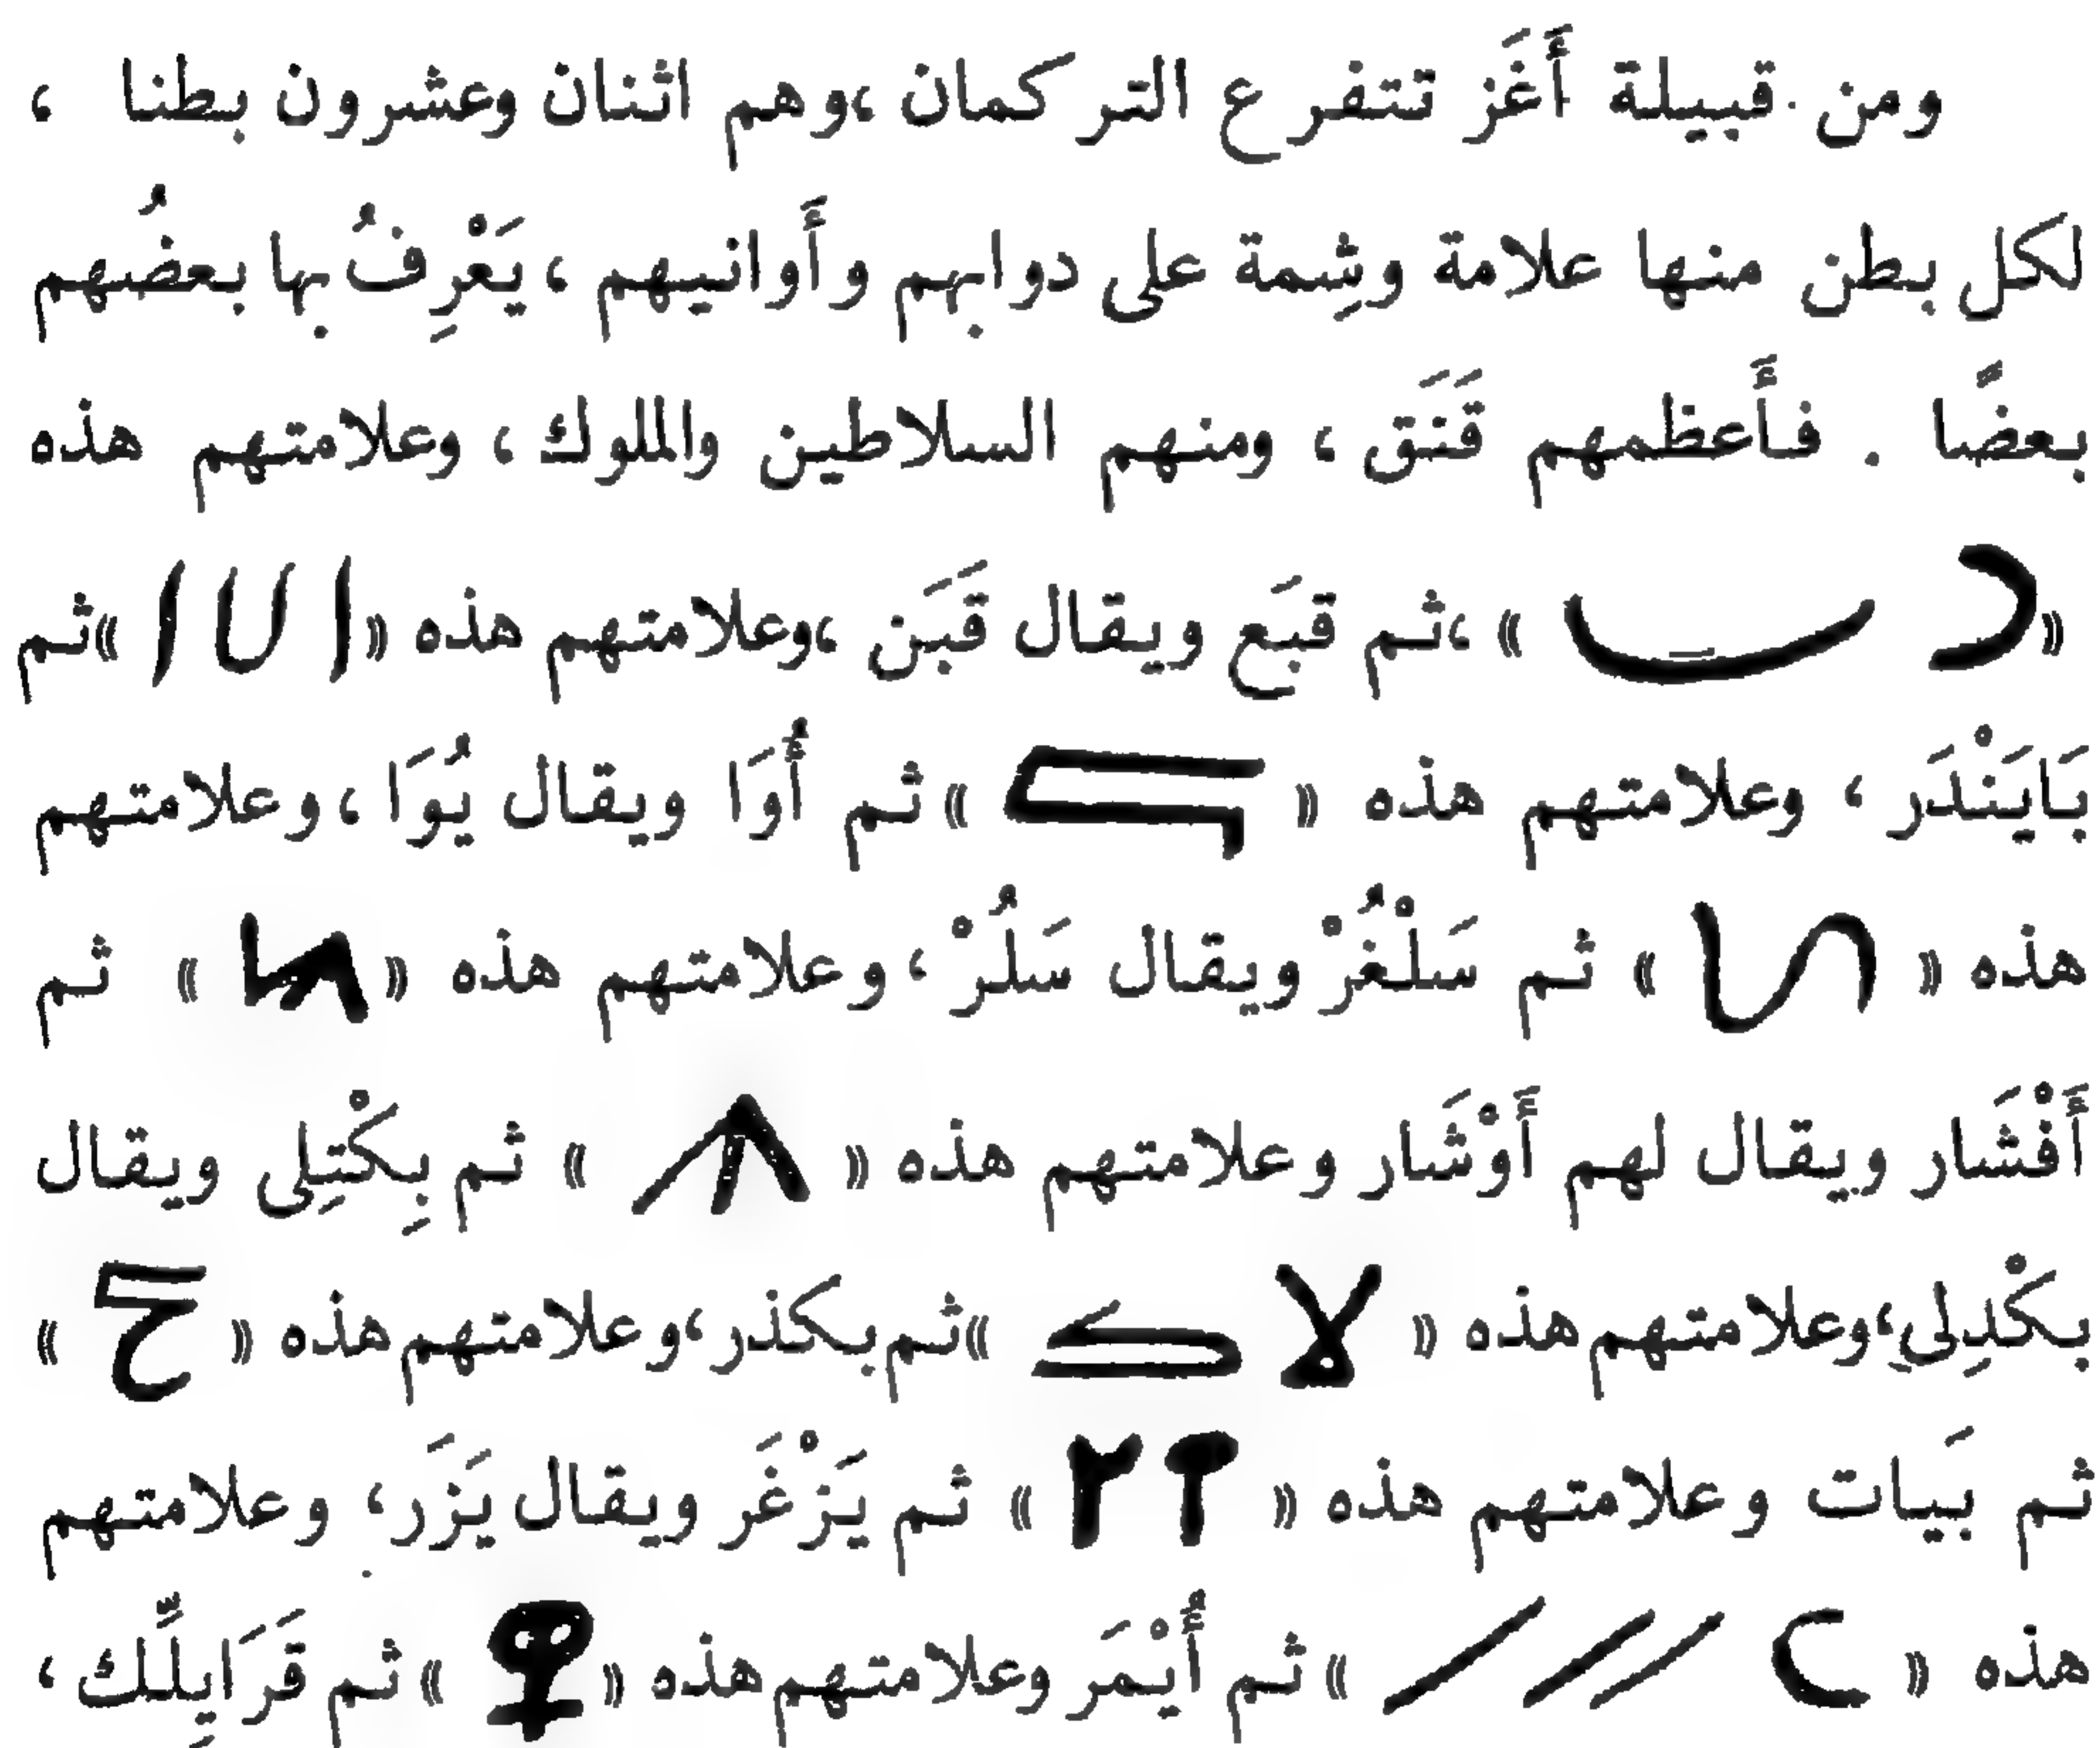 ومن قبيلة أَغَز تتفرع التركمان ،وهم اثنان وعشرون بطنا ،
لكل بطن منها علامة وشِمة على دوابهم وأَوانيهم ، يَعْرِفُ بها بعضُهم
بعضًا . فأَعظمهم قَنَق ، ومنهم السلاطين والملوك ، وعلامتهم هذه
« » ،ثم قبَع ويقال قَبَن ،وعلامتهم هذه « » ثم
بَايَنْدَر ، وعلامتهم هذه « » ثم أُوَا ويقال يُوَا ، وعلامتهم
هذه « » ثم سَلْغُرْ ويقال سَلُرْ ، وعلامتهم هذه « » ثم
أَفْشَار ويقال لهم أَوْشَار وعلامتهم هذه « » ثم بِكْتِلى ويقال
بكْدِلي ،وعلامتهم هذه « » ثم بكذر ،وعلامتهم هذه « »
ثم بَيات وعلامتهم هذه « » ثم يَزْغَر ويقال يَزَر ، وعلامتهم
هذه « » ثم أُيْمَر وعلامتهم هذه « » ثم قَرَايِلَّك ،